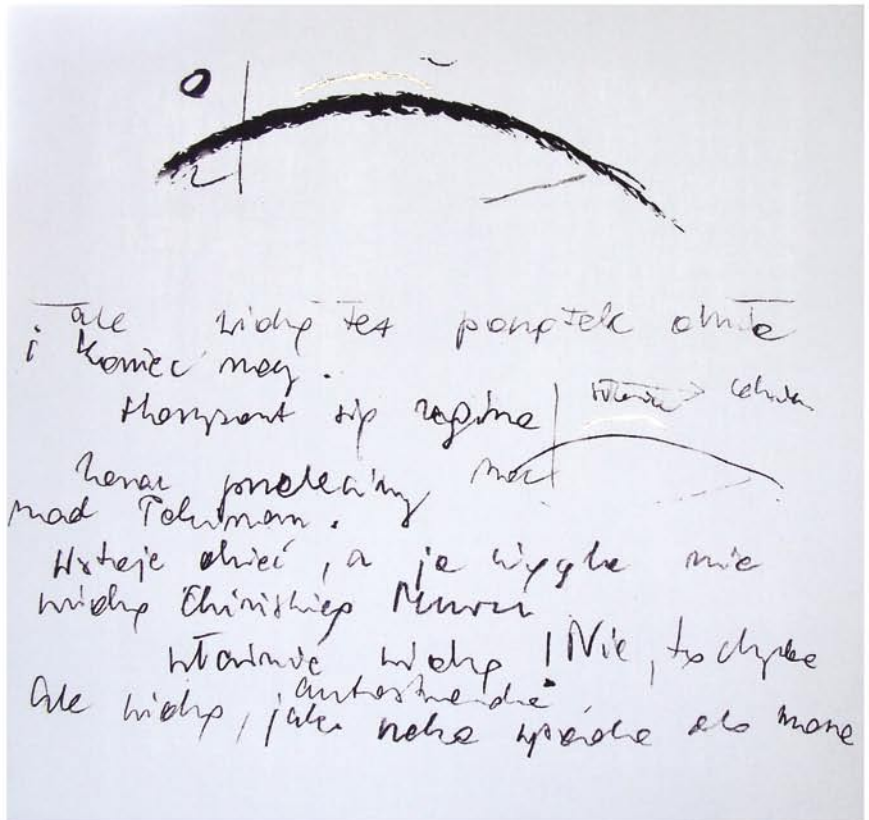 ale widzę też początek dnia
i koniec nocy.
Horyzont się wygina
Zaraz przelecimy
nad Pekinem.
Wstaje dzień, a ja ciągle nie
widzę Chińskiego Muru
właśnie widzę! Nie, to chyba
autostrada
ale widzę, jak rzeka wpada do morza